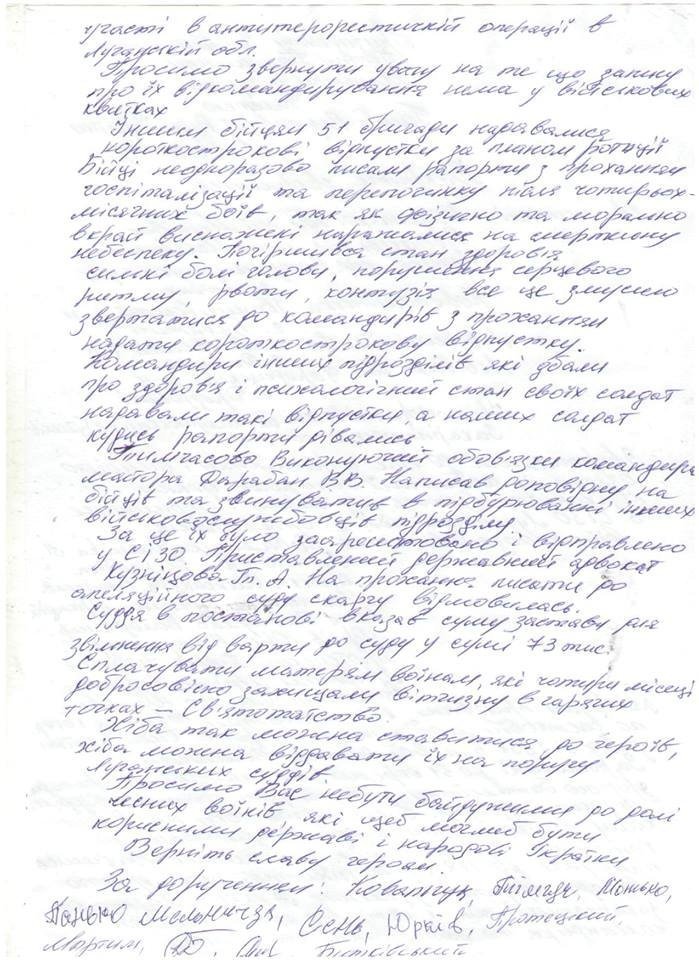 участі в антитерористичній операції в
Луганскій обл.
Просимо звернути увагу на те що запису
про їх відкомандирування нема у військових
квитках
Іншим бійцям 51 бригади надавалися
короткострокові відпустки за планом ротації
Бійці неодноразово писали рапорти з проханням
госпіталізації та перепочинку після чотирьох-
місячних боїв, так як фізично та морально
вкрай виснажені наражались на смертельну
небезпеку. Погіршився стан здоровія
сильні болі голови, порушення серцевого
ритму, рвоти, контузія все це змусило
звертатися до командирів з проханням
надати короткострокову відпустку.
Командири інших підрозділів які дбали
про здоровія і психологічний стан своїх солдат
надавали такі відпустки, а наших солдат
кудись рапорти дівались
Тимчасово Виконуючий обовіязки командира
майора Дарабан В.В. Написав доповідну на
бійців та звинуватив в підбурюванні інших
військовослужбовців підрозділу
За це їх було заарештовано і відправлено
у СІЗО Приставлений державний адвокат
Кузніцова А. На прохання писати до
апеляційного суду скаргу відмовилась.
Суддя в постанові вказав суму застави для
звільнення від варти до суду у сумі 73 тис.
Сплачувати матерям воїнам, які чотири місяці
добросовісно захищали вітчизну в гарячих
точках — Святотатство.
Хіба так можна ставитися до героїв,
хіба можна віддавати їх на поругу
Луганських суддів
Просимо Вас небути байдужими до долі
чесних воїнів які щеб моглиб бути
корисними державі і народові України
Верніть славу героям.
За дорученням: Ковальчук, Монько,
Панько Мельничук, Сень, Юраїв, Протецкий,
Мартин,